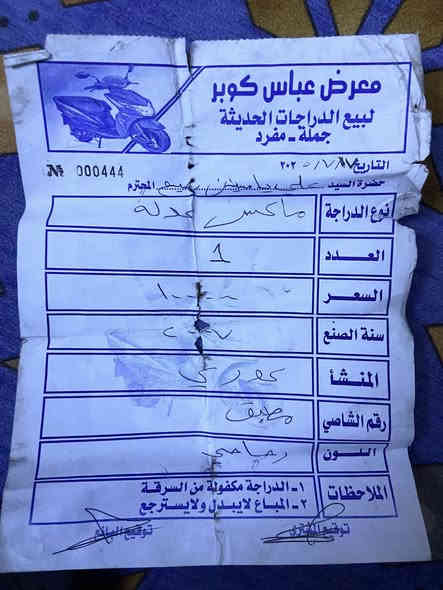 معرض عباس كوبر
لبيع الدراجات الحديثة
جملة - مفرد
№ 000444
التاريخ / ٧ / ٢٠٢
حضرة السيد علي ياسين المحترم
نوع الدراجة ماكس عدلة
العدد 1
السعر
سنة الصنع
المنشأ
رقم الشاصي مطبق
اللون رصاصي
الملاحظات
١- الدراجة مكفولة من السرقة
٢- المباع لايبدل ولايسترجع
توقيع المشتري
توقيع البائع